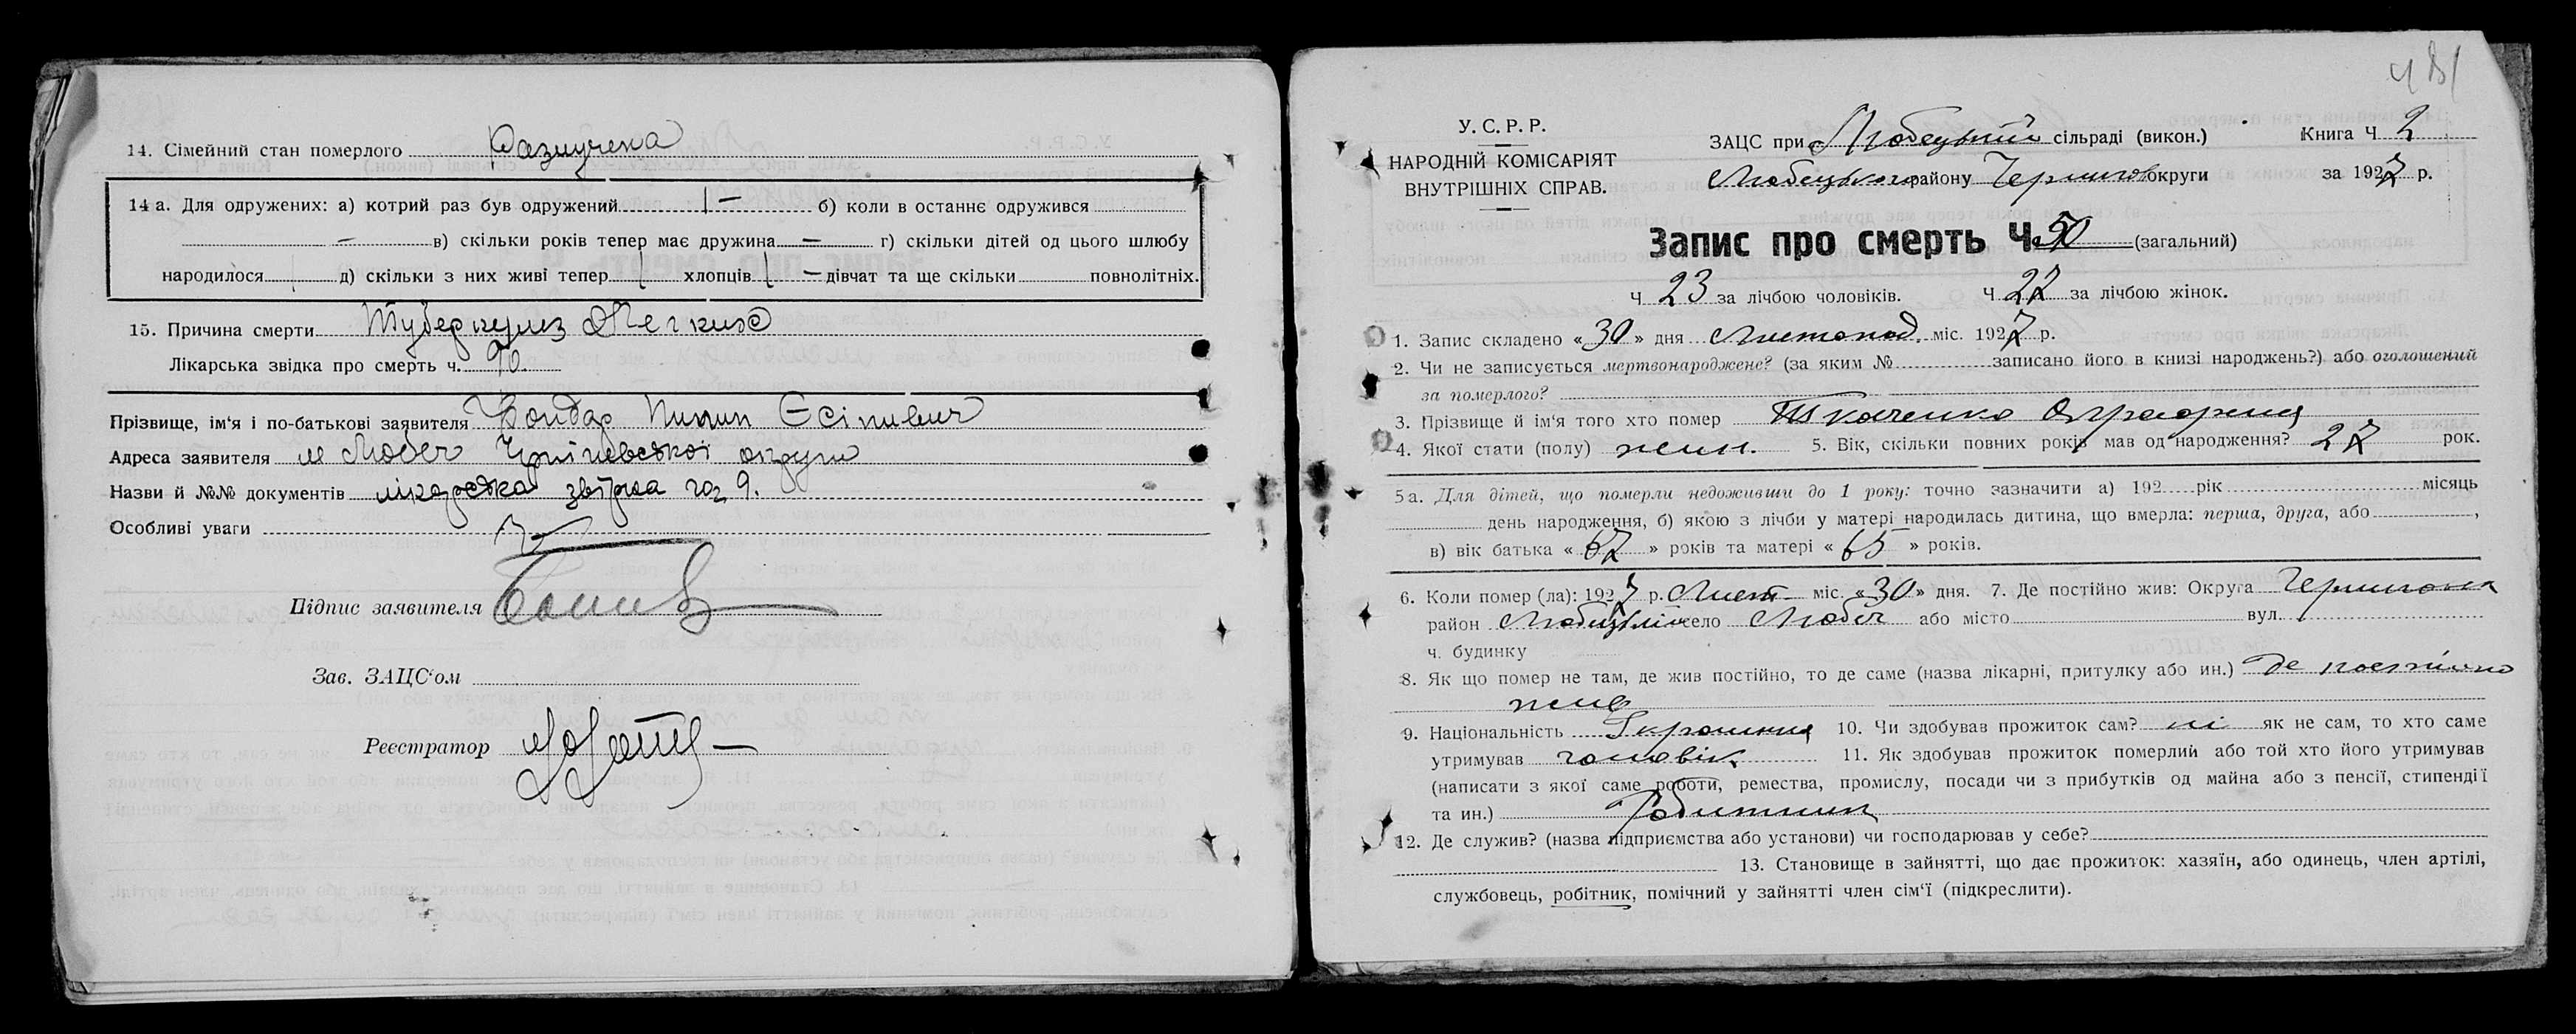 14. Сімейний стан померлого Разлучена
14 а. Для одружених: а) котрий раз був одружений 1 — б) коли в останнє одружився
— в) скільки років тепер має дружина — г) скільки дітей од цього шлюбу
народилося д) скільки з них живі тепер хлопців — дівчат та ще скільки повнолітніх.
15. Причина смерти Туберкулез Легких
Лікарська звідка про смерть ч. 90.
Прізвище, ім'я і по-батькові заявителя Бондар Пилип Єсіпивич
Адреса заявителя м Любеч Чернігівської округи
Назви й №№ документів лікарська звідка
Особливі уваги
Підпис заявителя
Зав. ЗАЦС'ом
Реєстратор
481
У. С. Р. Р.
НАРОДНІЙ КОМІСАРІЯТ
ВНУТРІШНІХ СПРАВ.
ЗАЦС при Любецькій сільраді (викон.) Книга Ч 2
Любецького району Чернигів округи за 1927 р.
Запис про смерть Ч. 50 (загальний)
Ч 23 за лічбою чоловіків. Ч 27 за лічбою жінок.
1. Запис складено «30» дня Листопад. міс. 1927 р.
2. Чи не записується мертвонароджене? (за яким № записано його в книзі народжень?) або оголошений
за померлого?
3. Прізвище й ім'я того хто помер Ткаченко Ографина
4. Якої стати (полу) жин. 5. Вік, скільки повних років мав од народження? 27 рок.
5 а. Для дітей, що померли недоживши до 1 року: точно зазначити а) 192 рік місяць
день народження, б) якою з лічби у матері народилась дитина, що вмерла: перша, друга, або ,
в) вік батька « 67 » років та матері « 65 » років.
6. Коли помер (ла): 1927 р. Лист міс. «30» дня. 7. Де постійно жив: Округа
район Любецький село Любеч або місто вул.
ч. будинку
8. Як що помер не там, де жив постійно, то де саме (назва лікарні, притулку або ин.) де постійно
жив
9. Національність Українка 10. Чи здобував прожиток сам? ні як не сам, то хто саме
утримував чоловік 11. Як здобував прожиток померлий або той хто його утримував
(написати з якої саме роботи, ремества, промислу, посади чи з прибутків од майна або з пенсії, стипендії
та ин.) Робитник
12. Де служив? (назва підприємства або установи) чи господарював у себе?
13. Становище в зайнятті, що дає прожиток: хазяїн, або одинець, член артілі,
службовець, робітник, помічний у зайнятті член сім'ї (підкреслити).